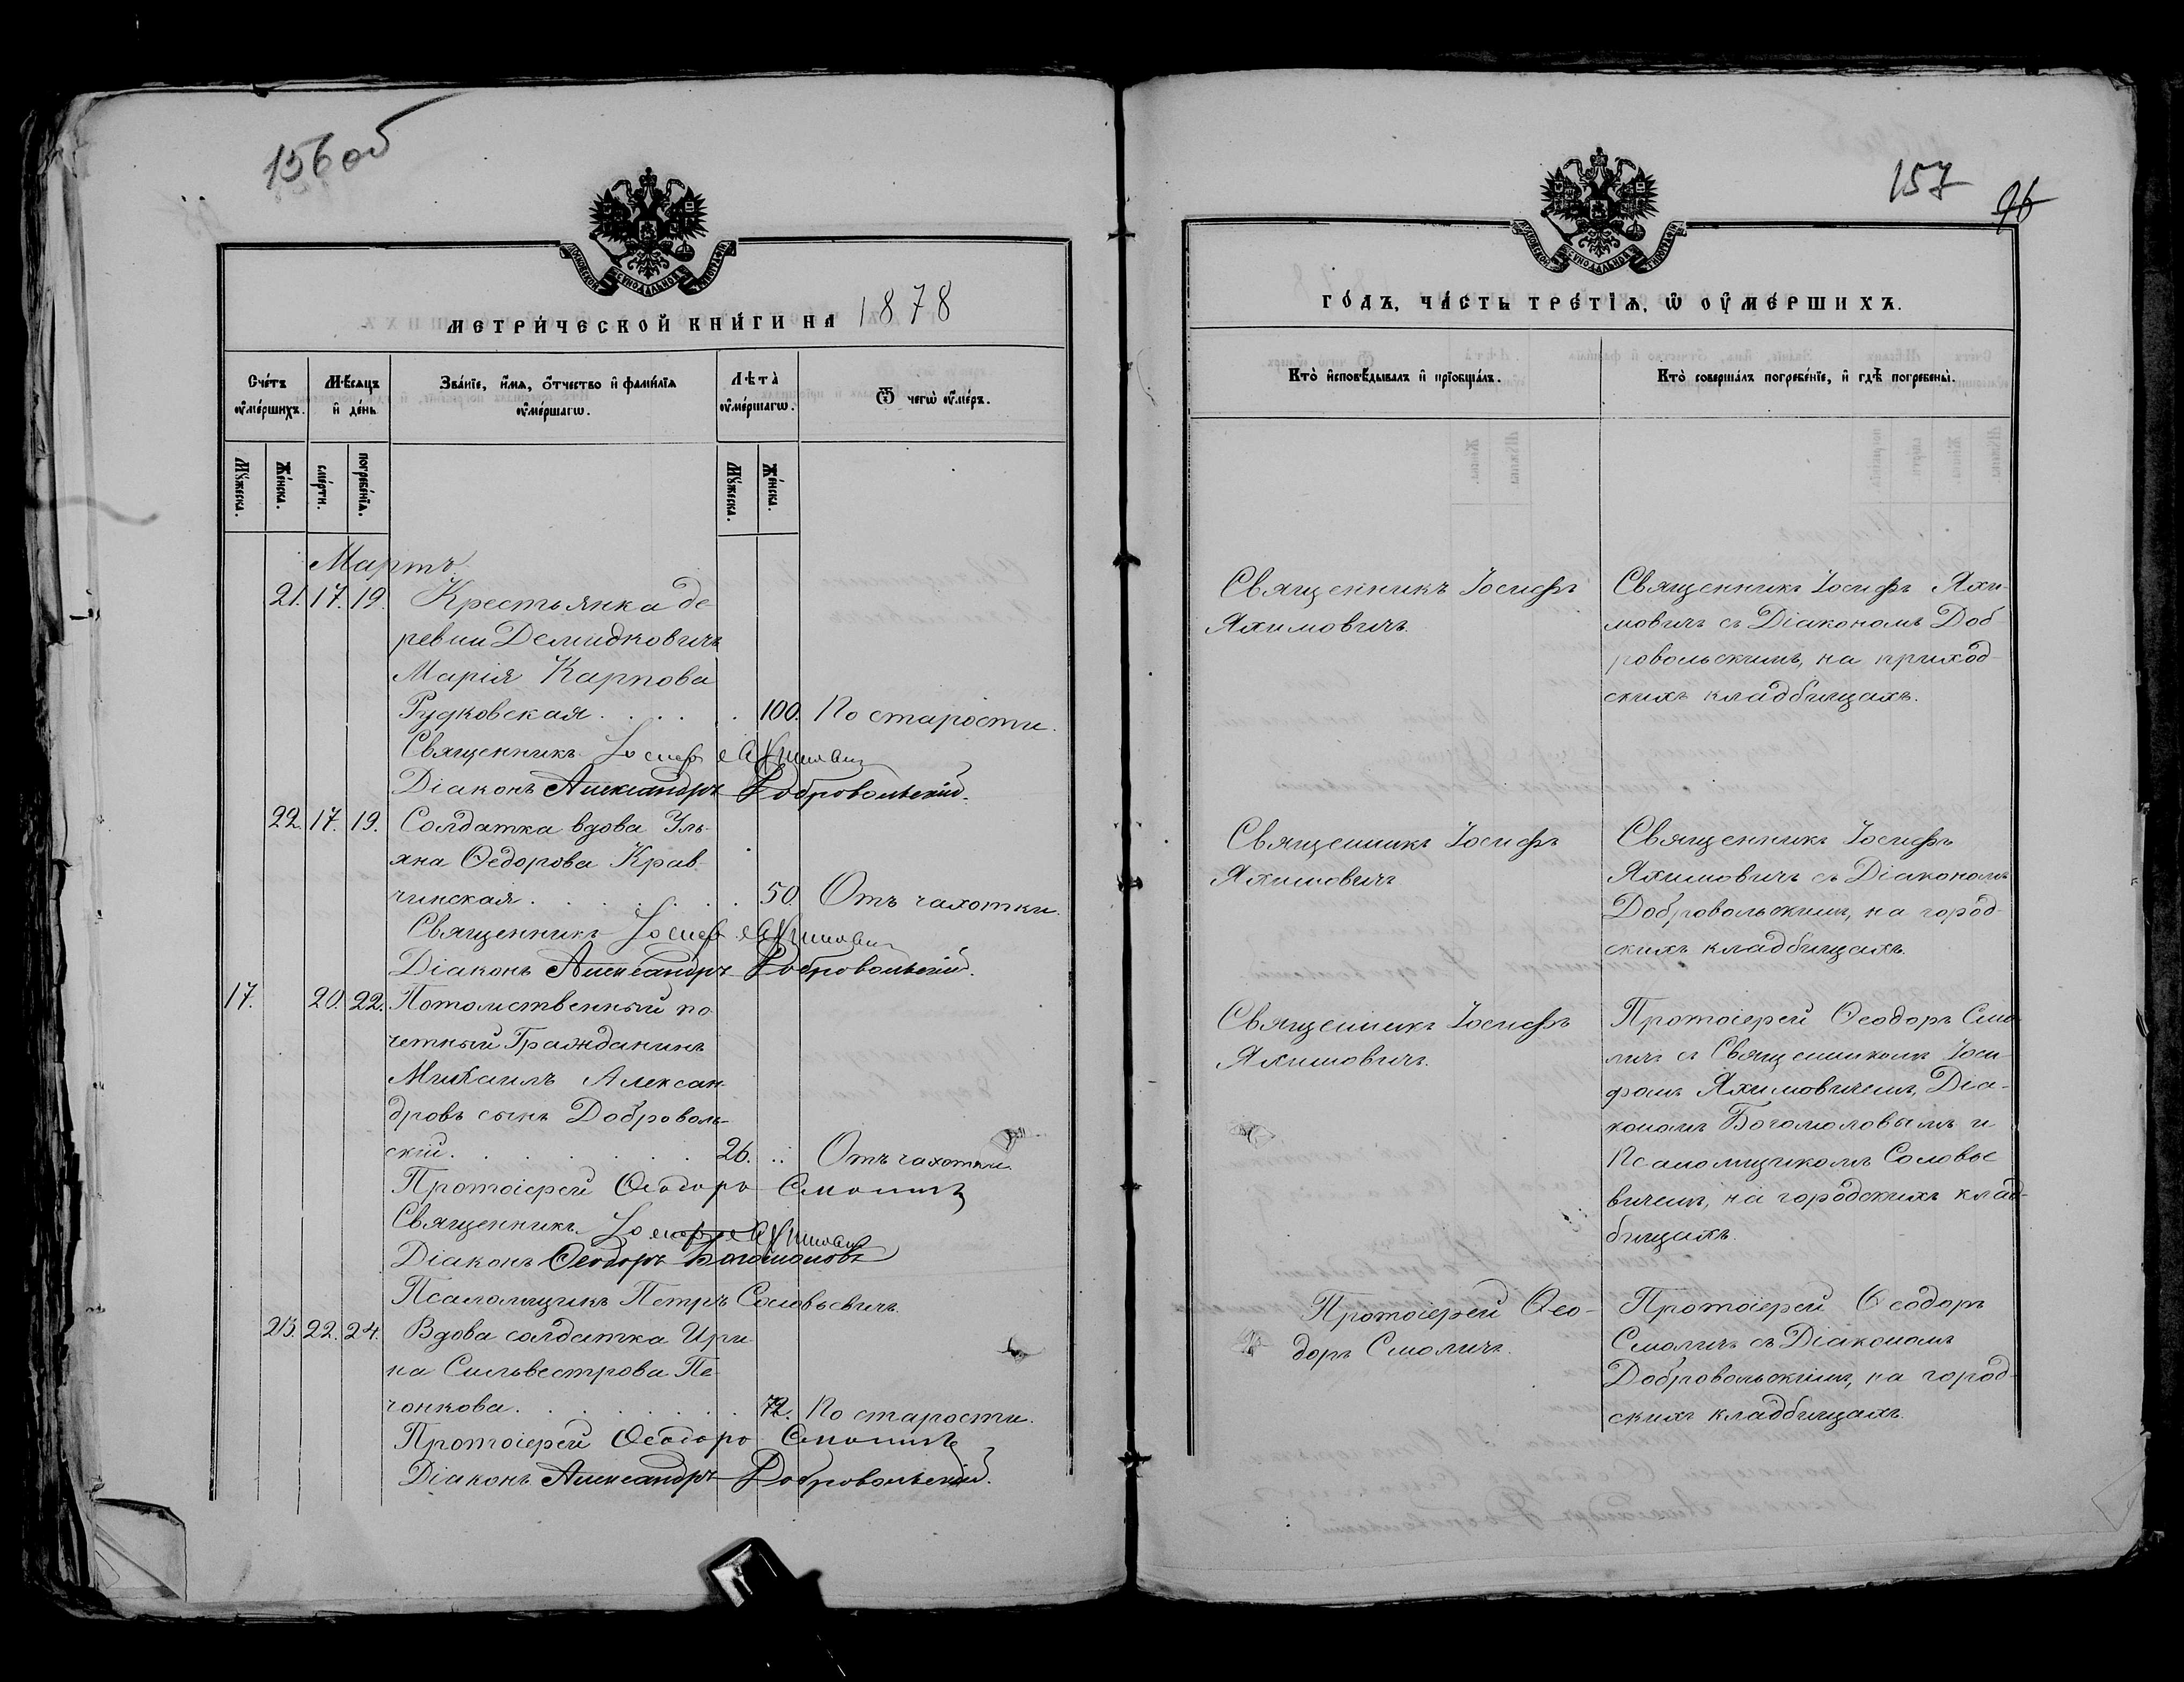 156 об
МЕТРИ́ЧЕСКОЙ КНИ́ГИ НА 1878
Сче́тъ ᲂу҆ме́ршихъ.
Мѣ́сяцъ и҆ де́нь
Зва́нїе, и҆́мѧ, ѻ҆́тчество и҆ фами́лїѧ ᲂу҆ме́ршагѡ.
Лѣта̀ ᲂу҆ме́ршагѡ.
Ѿ чегѡ̀ ᲂу҆ме́ръ.
Мꙋ́жеска.
Же́нска.
сме́рти.
погребе́нїѧ.
Мꙋ́жеска.
Же́нска.
Мартъ.
21. 17. 19. Крестьянка де
ревни Демидковичъ
Марія Карпова
Рудковская . . . . . 100. По старости.
Священникъ Іосифъ Яхимовичъ
Діаконъ Александръ Добровольскій.
22. 17. 19. Солдатка вдова Уль-
яна Ѳедорова Крав-
чинская . . . . . . 50. Отъ чахотки.
Священникъ Іосифъ Яхимовичъ
Діаконъ Александръ Добровольскій.
17. 20. 22. Потомственный по
четный Гражданинъ
Михаилъ Алексан-
дровъ сынъ Доброволь-
скій . . . . . . 26. .. Отъ чахотки.
Протоіерей Ѳеодоръ Смоличъ
Священникъ Іосифъ Яхимовичъ
Діаконъ Ѳеодоръ Богомоловъ
Псаломщикъ Петръ Соловьевичъ.
23. 22. 24. Вдова солдатка Ири
на Сильвестрова Пе
чонкова . . . . . . 72. По старости.
Протоіерей Ѳеодоръ Смоличъ
Діаконъ Александръ Добровольскій.
157 96
ГО́ДЪ, ЧА́СТЬ ТРЕ́ТЇѦ, Ѡ҆ ОУ҆МЕ́РШИХЪ.
Кто̀ и҆сповѣ́дывалъ и҆ прїобща́лъ.
Кто̀ соверша́лъ погребе́нїе, и҆ гдѣ̀ погребены̀.
Священникъ Іосифъ
Яхимовичъ.
Священникъ Іосифъ Яхи-
мовичъ съ Діакономъ Доб-
ровольскимъ, на приход-
скихъ кладбищахъ.
Священникъ Іосифъ
Яхимовичъ
Священникъ Іосифъ
Яхимовичъ съ Діакономъ
Добровольскимъ, на город-
скихъ кладбищахъ.
Священникъ Іосифъ
Яхимовичъ.
Протоіерей Ѳеодоръ Смо
личъ съ Священникомъ Іоси
фомъ Яхимовичемъ, Діа-
кономъ Богомоловымъ и
Псаломщикомъ Соловье
вичемъ, на городскихъ клад-
бищахъ.
Протоіерей Ѳео-
доръ Смоличъ.
Протоіерей Ѳеодоръ
Смоличъ съ Діакономъ
Добровольскимъ, на город-
скихъ кладбищахъ.